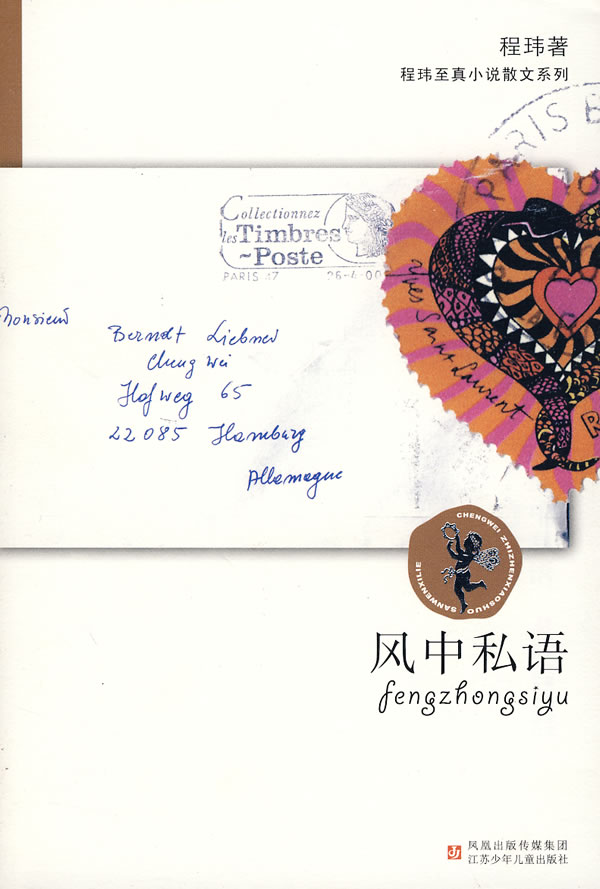 程玮著
程玮至真小说散文系列
PARIS
Collectionnez
les Timbres
~Poste
PARIS 17 26-4-00
Monsieur
Berndt Liebner
Cheng Wei
Hofweg 65
22085 Hamburg
Allemagne
Yves Saint Laurent
CHENGWEI ZHIZHENXIAOSHUO SANWENXILIE
风中私语
fengzhongsiyu
凤凰出版传媒集团
江苏少年儿童出版社